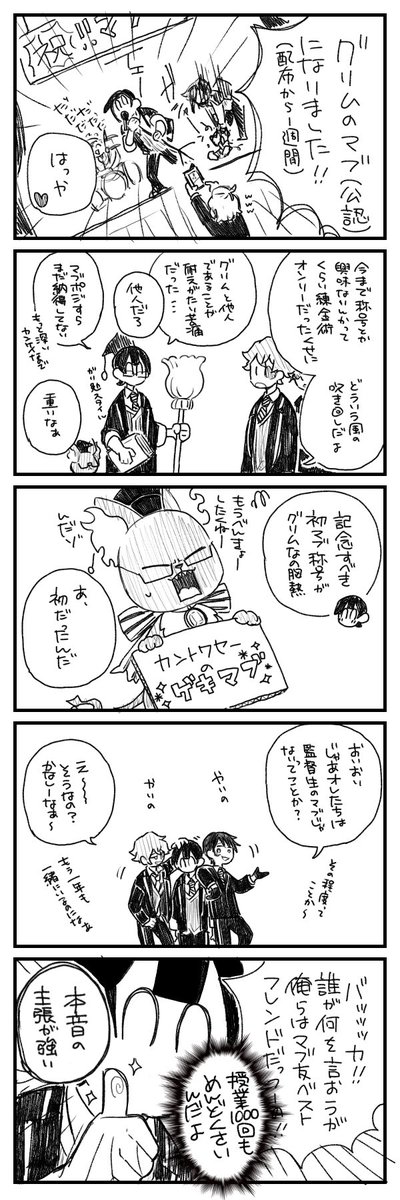 祝!!マ
グリムのマブ(公認)
になりました!!
(配布から1週間)
だだだ
はっや
今まで称号とか
興味ないしかって
くらい錬金術
オンリーだったくせに
どういう風の
吹き回しだよ
グリムと他人
であることが
耐えがたい苦痛
だった…
他人だろ
マブポジすら
まだ納得してない
もっと深い
カンケイ
重いなぁ
記念すべき
初マブ称号が
グリムなの胸熱
もうべんきょー
したくねー
んだゾ
あ、
初だったんだ
カントクセーの
ゲキマブ
おいおい
じゃあオレたちは
監督生のマブじゃ
ないってことか?
その程度って
ことか〜
やいの
やいの
え〜〜
そうなの?
かなしーなぁ〜
もう一年も
一緒にいるのになぁ
バッッッカ!!
誰が何を言おうが
俺らはマブ友ベスト
フレンドだっつ
授業1000回も
めんどくさい
んだよ
本音の
主張が強い